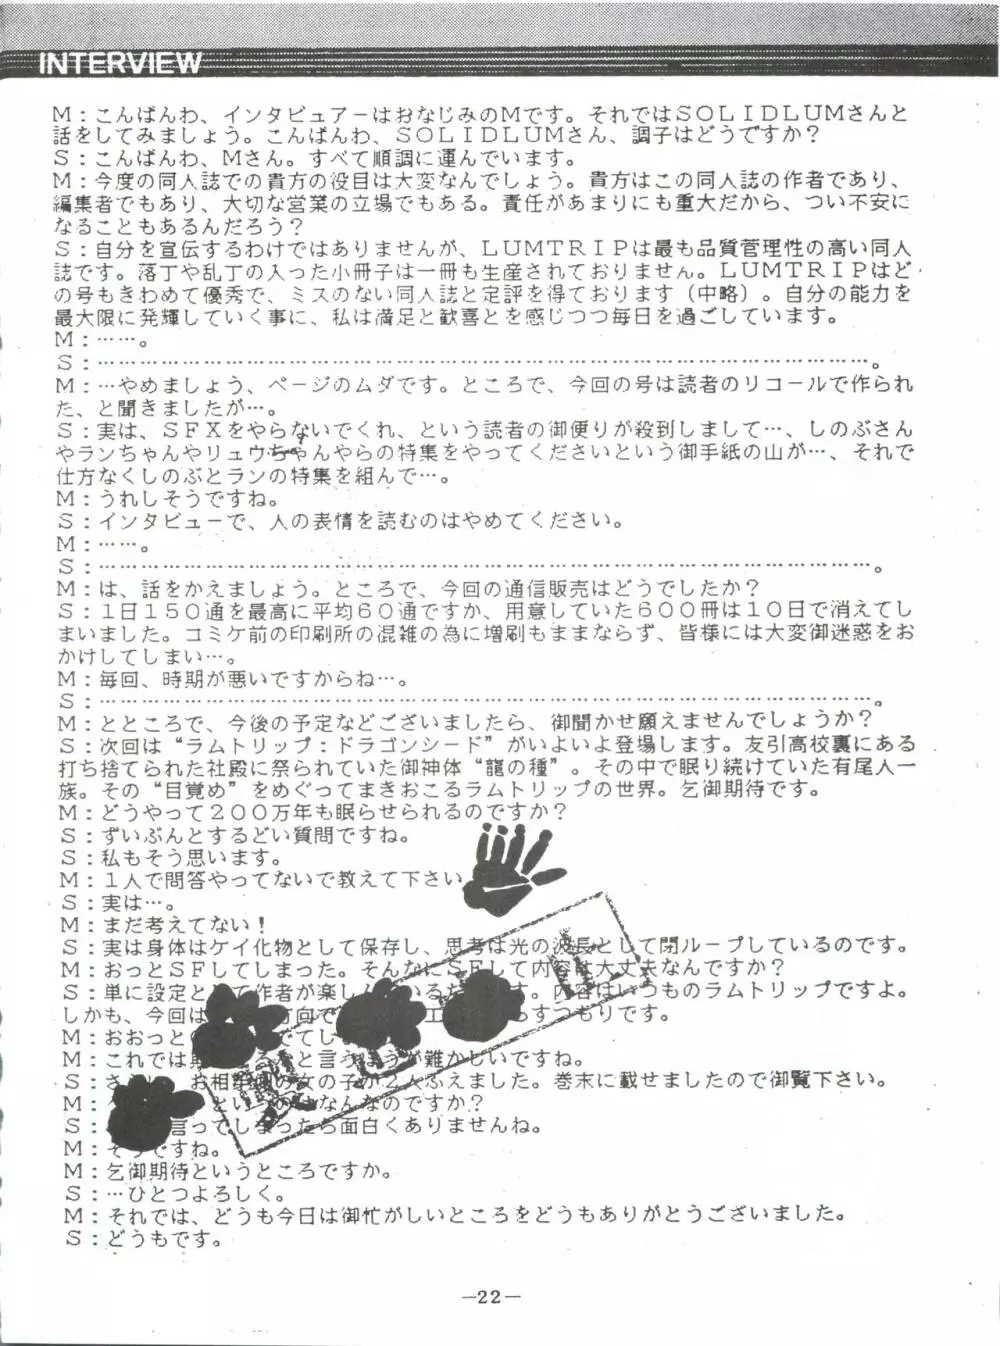 INTERVIEW
M：こんばんわ、インタビュアーはおなじみのMです。それではSOLIDLUMさんと
話をしてみましょう。こんばんわ、SOLIDLUMさん、調子はどうですか？
S：こんばんわ、Mさん。すべて順調に運んでいます。
M：今度の同人誌での貴方の役目は大変なんでしょう。貴方はこの同人誌の作者であり、
編集者でもあり、大切な営業の立場でもある。責任があまりにも重大だから、つい不安に
なることもあるんだろう？
S：自分を宣伝するわけではありませんが、LUMTRIPは最も品質管理性の高い同人
誌です。落丁や乱丁の入った小冊子は一冊も生産されておりません。LUMTRIPはど
の号もきわめて優秀で、ミスのない同人誌と定評を得ております（中略）。自分の能力を
最大限に発揮していく事に、私は満足と歓喜とを感じつつ毎日を過ごしています。
M：……。
S：………………………………………………………………………………………。
M：…やめましょう、ページのムダです。ところで、今回の号は読者のリコールで作られ
た、と聞きましたが…。
S：実は、SFXをやらないでくれ、という読者の御便りが殺到しまして…、しのぶさん
やランちゃんやリュウちゃんやらの特集をやってくださいという御手紙の山が…、それで
仕方なくしのぶとランの特集を組んで…。
M：うれしそうですね。
S：インタビューで、人の表情を読むのはやめてください。
M：……。
S：………………………………………………………………………………………。
M：は、話をかえましょう。ところで、今回の通信販売はどうでしたか？
S：1日150通を最高に平均60通ですか、用意していた600冊は10日で消えてし
まいました。コミケ前の印刷所の混雑の為に増刷もままならず、皆様には大変御迷惑をお
かけしてしまい…。
M：毎回、時期が悪いですからね…。
S：………………………………………………………………………………………。
M：とところで、今後の予定などございましたら、御聞かせ願えませんでしょうか？
S：次回は“ラムトリップ：ドラゴンシード”がいよいよ登場します。友引高校裏にある
打ち捨てられた社殿に祭られていた御神体“龍の種”。その中で眠り続けていた有尾人一
族。その“目覚め”をめぐってまきおこるラムトリップの世界。乞御期待です。
M：どうやって200万年も眠らせられるのですか？
S：ずいぶんとするどい質問ですね。
S：私もそう思います。
M：1人で問答やってないで教えて下さい
S：実は…。
M：まだ考えてない！
S：実は身体はケイ化物として保存し、思考は光の波長として閉ループしているのです。
M：おっとSFしてしまった。そんなにSFして内容は大丈夫なんですか？
S：単に設定として作者が楽しんでいるだけです。内容はいつものラムトリップですよ。
しかも、今回は 方向で 工 らすつもりです。
M：おおっと でてし
M：これでは期 るなと言うほうが難かしいですね。
S：さ お相 の女の子が2人ふえました。巻末に載せましたので御覧下さい。
M： というのはなんなのですか？
S： 言ってしまったら面白くありませんね。
M：そうですね。
M：乞御期待というところですか。
S：…ひとつよろしく。
M：それでは、どうも今日は御忙がしいところをどうもありがとうございました。
S：どうもです。
—22—